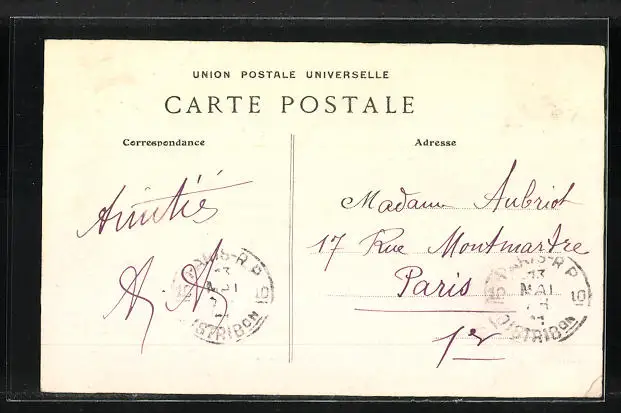 UNION POSTALE UNIVERSELLE
CARTE POSTALE
Correspondance
Adresse
Amitiés
Madame Aubriot
17 Rue Montmartre
Paris
1er
PARIS-R.P.
13
MAI
DISTRIBON
PARIS-R.P.
13
MAI
10
DISTRIBON